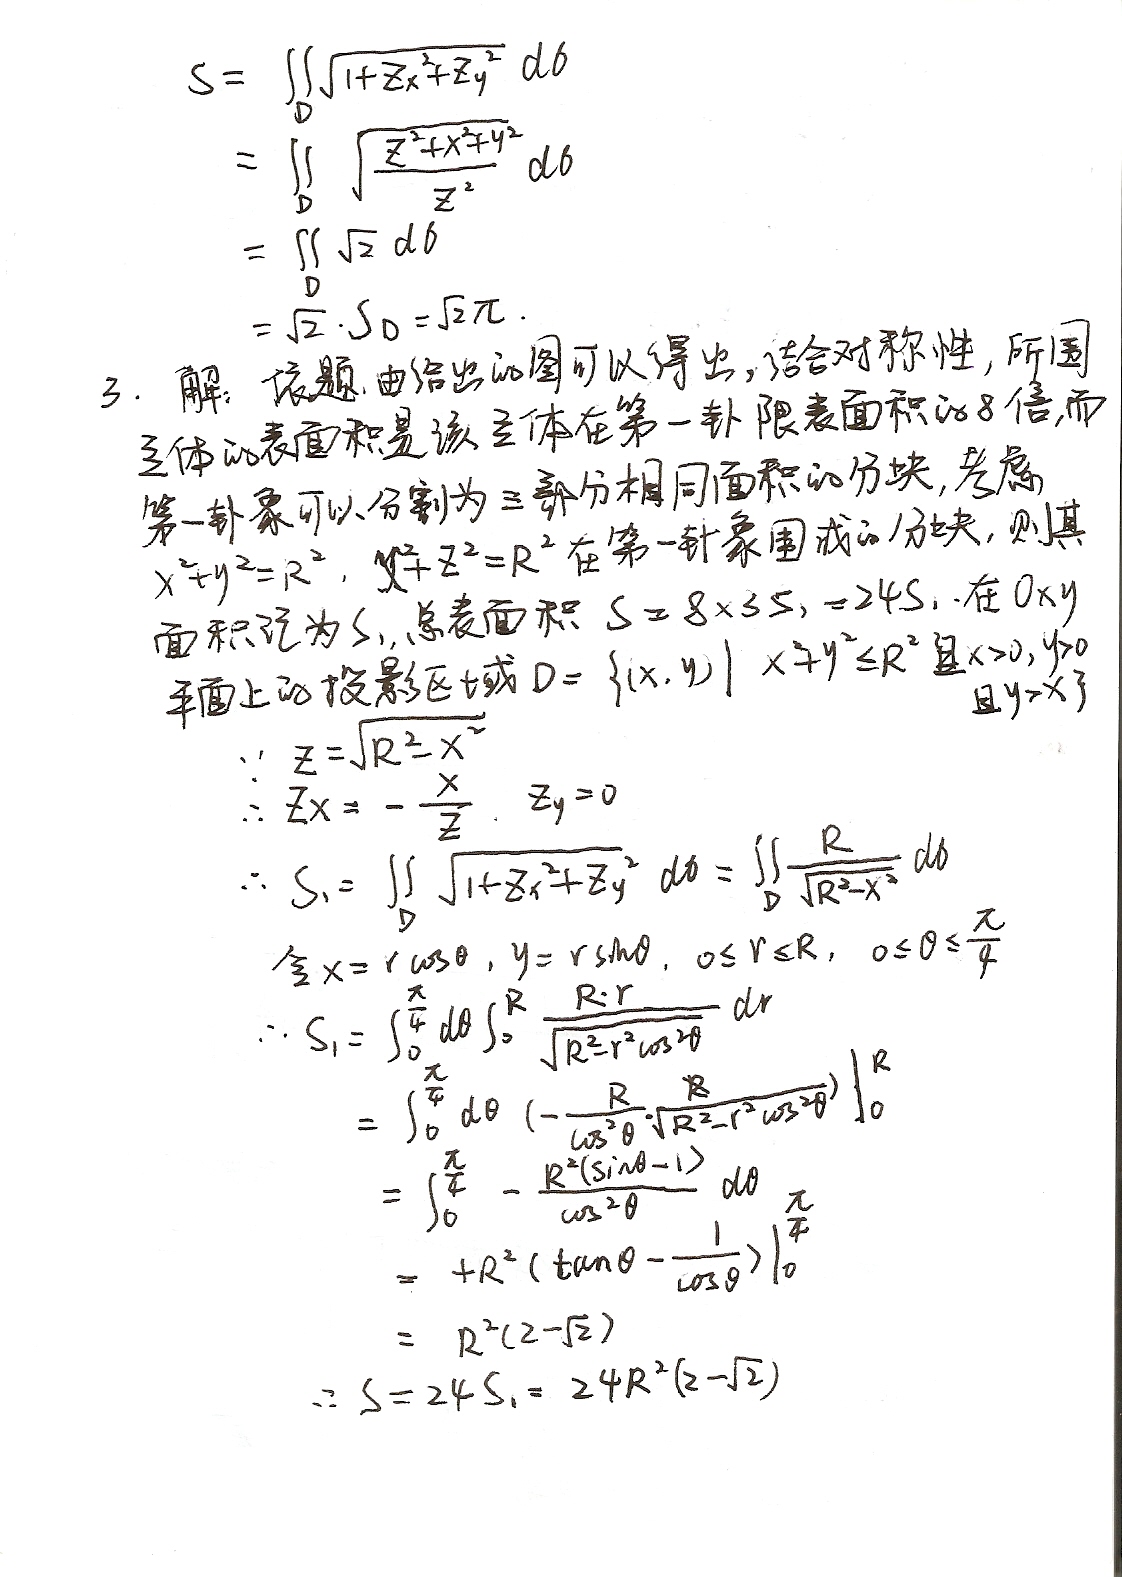 S = ∬_D √(1+Zx²+Zy²) dσ
= ∬_D √((Z²+x²+y²)/Z²) dσ
= ∬_D √2 dσ
= √2 · S_D = √2 π .
3. 解: 依题,由给出的图可以得出,结合对称性,所围
立体的表面积是该立体在第一卦限表面积的8倍,而
第一卦象可以分割为三部分相同面积的分块,考虑
x²+y²=R², x²+z²=R² 在第一卦象围成的分块,则其
面积记为S₁,总表面积 S = 8×3S₁ = 24S₁. 在Oxy
平面上的投影区域D = {(x,y) | x²+y² ≤ R² 且x>0,y>0
且y>x}
∵ Z = √(R²-x²)
∴ Zx = - x/Z . Zy = 0
∴ S₁ = ∬_D √(1+Zx²+Zy²) dσ = ∬_D R/√(R²-x²) dσ
令 x = r cosθ, y = r sinθ, 0≤r≤R, 0≤θ≤π/4
∴ S₁ = ∫₀^(π/4) dθ ∫₀^R R·r/√(R²-r²cos²θ) dr
= ∫₀^(π/4) dθ (- R/cos²θ · √(R²-r²cos²θ)) |₀^R
= ∫₀^(π/4) - R²(sinθ-1)/cos²θ dθ
= +R² (tanθ - 1/cosθ) |₀^(π/4)
= R²(2-√2)
∴ S = 24S₁ = 24R²(2-√2)